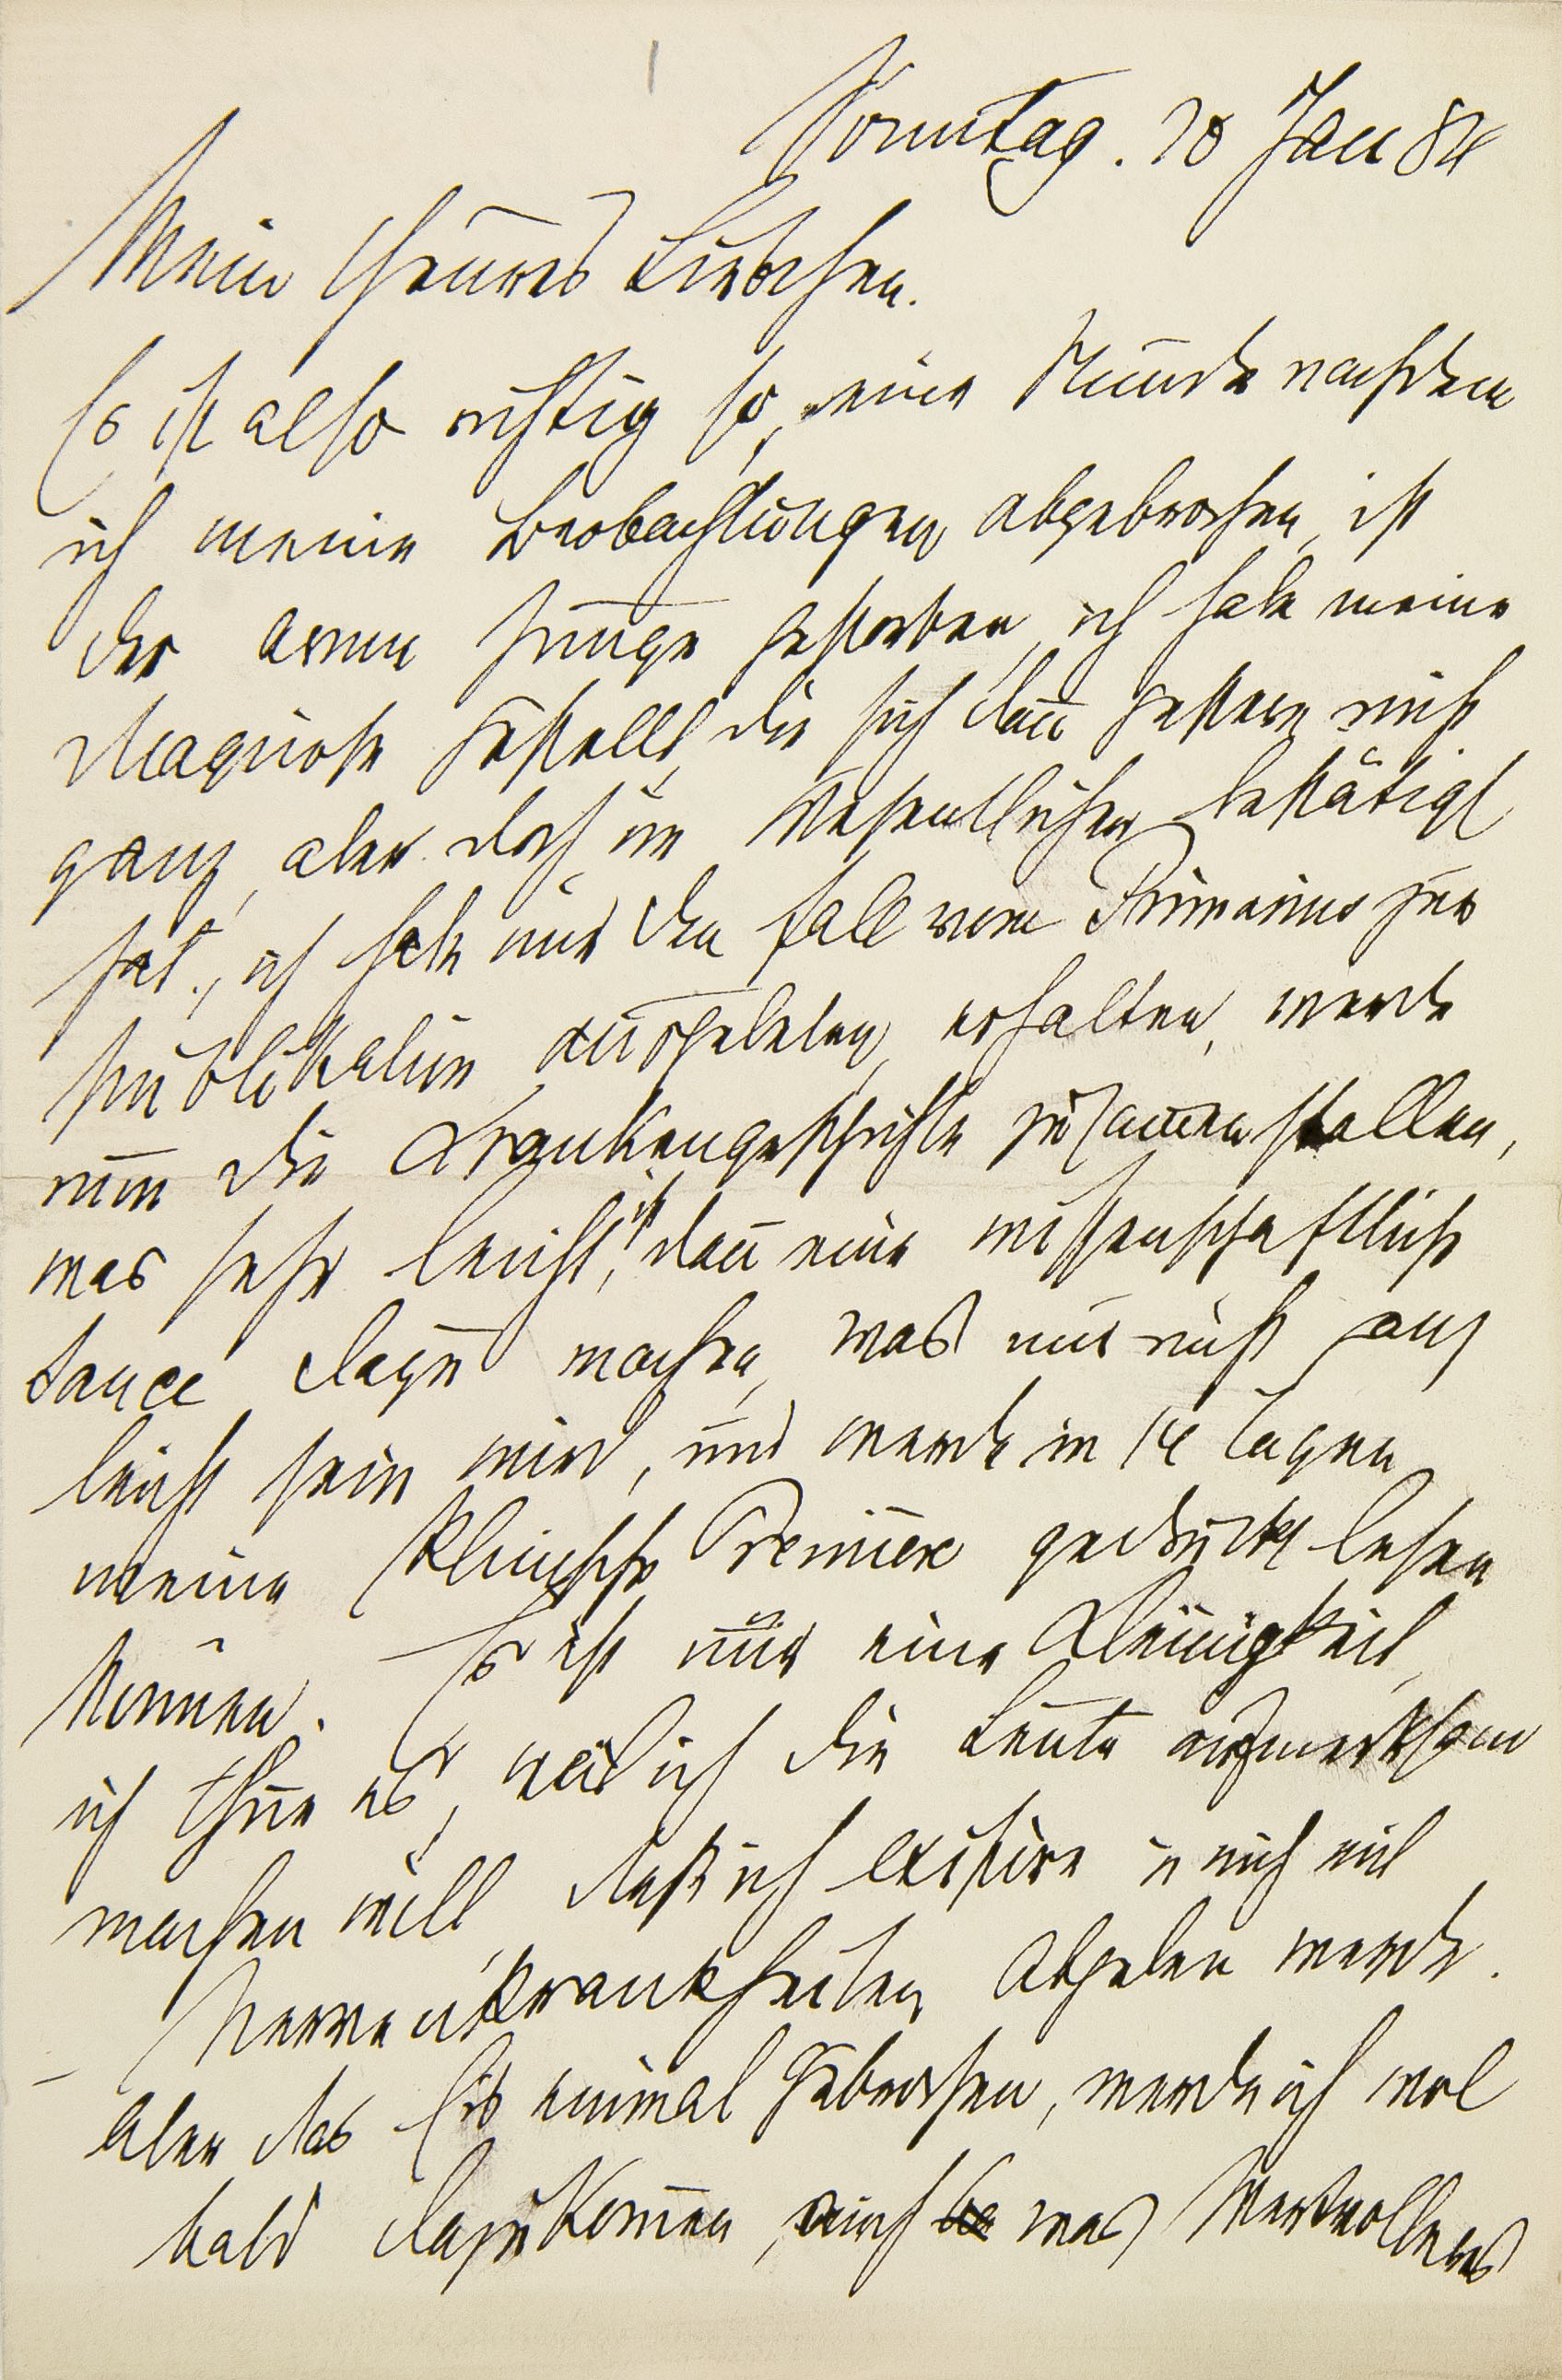 Sonntag. 20 Jan 84
Mein theures Liebchen.
Es ist also richtig so, eine Stunde nachdem
ich meine Beobachtungen abgebrochen, ist
der arme Junge gestorben, ich habe meine
Diagnose gestellt, die sich dann gestern nicht
ganz, aber doch im Wesentlichen bestätigt
hat., ich habe mir den Fall vom Primarius zur
Publikation ausgebeten, erhalten, werde
nun die Krankengeschichte zusammenstellen,
was sehr leicht ist, dann eine wissenschaftliche
Sauce dazu machen, was mir nicht ganz
leicht sein wird, und werde in 14 Tagen
meine klinische Premiere gedruckt lesen
können. – Es ist nur eine Kleinigkeit,
ich thue es, weil ich die Leute aufmerksam
machen will, daß ich existire u mich mit
Nervenkrankheiten abgeben werde.
– Aber das Eis einmal gebrochen, werde ich wol
bald dazu kommen, auch was Wertvolleres